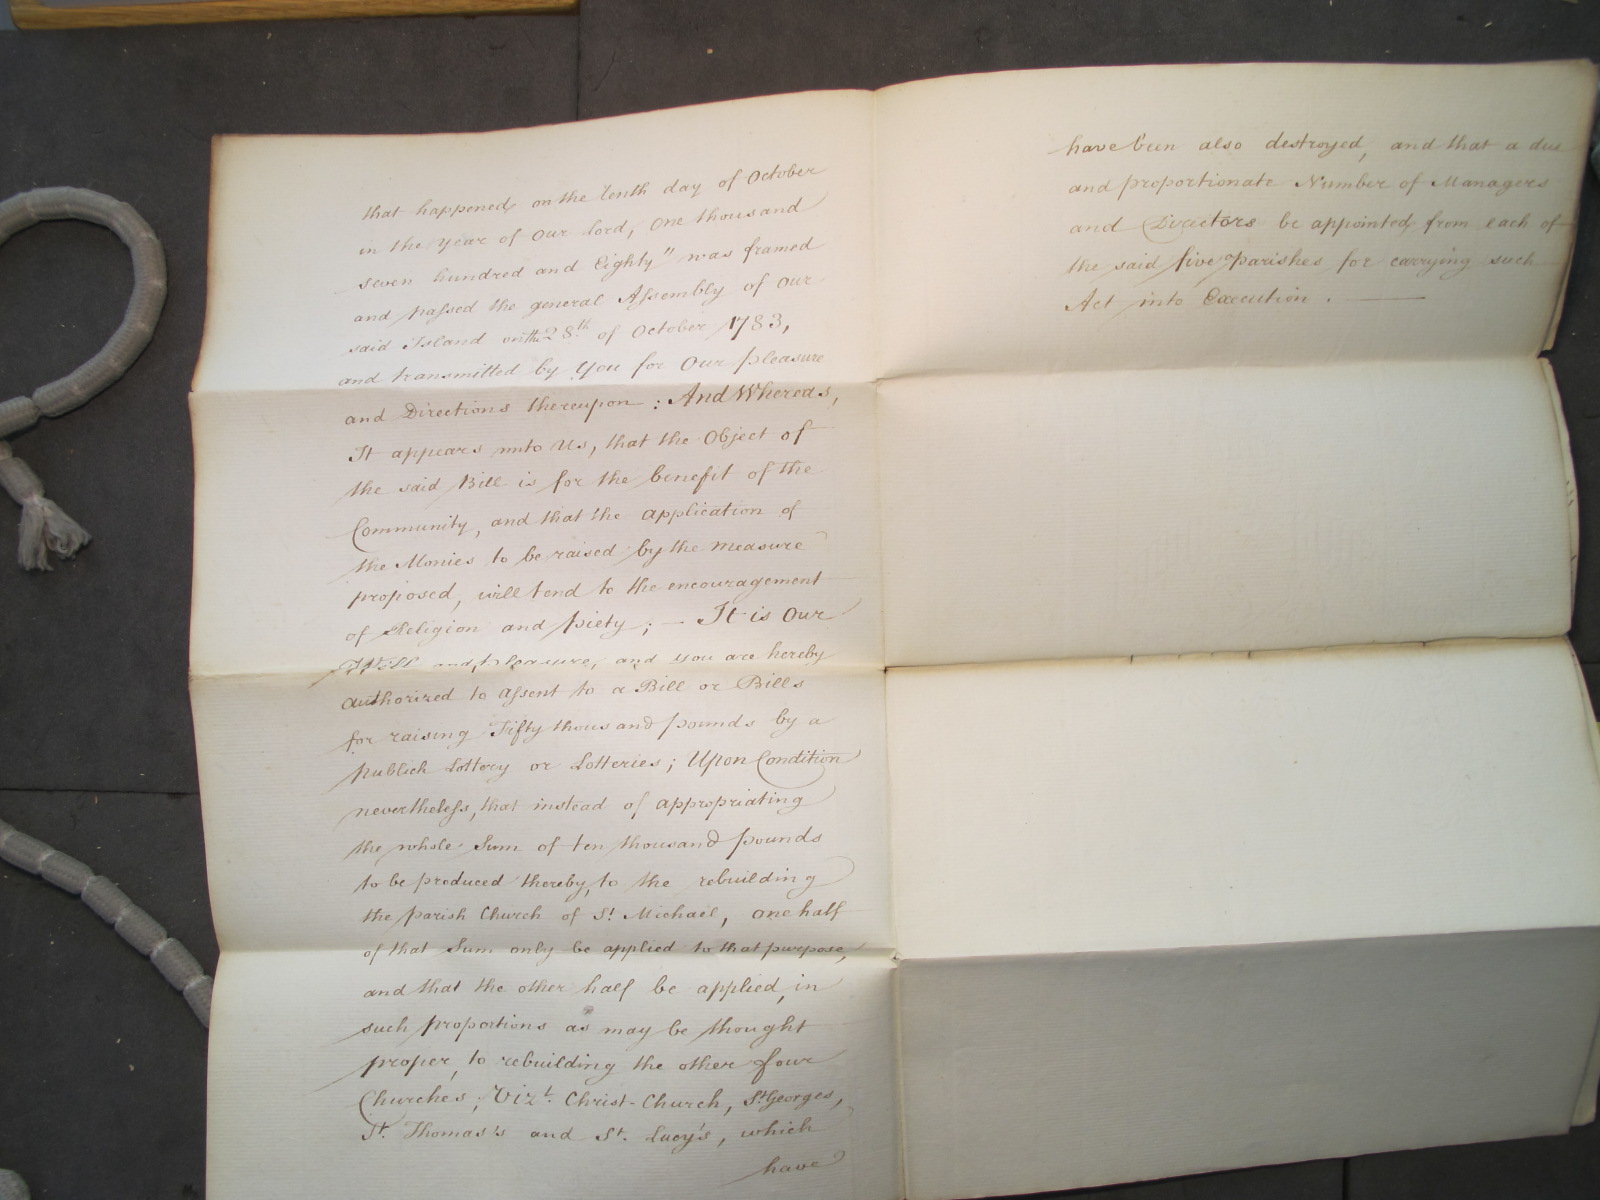 that happened on the tenth day of October
in the year of our Lord, One thousand
seven hundred and Eighty" was framed
and passed the general Assembly of our
said Island on the 28th. of October 1783,
and transmitted by You for Our pleasure
and Directions thereupon : And Whereas,
It appears unto Us, that the Object of
the said Bill is for the benefit of the
Community, and that the application of
the Monies to be raised by the measure
proposed, will tend to the encouragement
of Religion and piety ; — It is Our
Will and pleasure, and you are hereby
authorized to assent to a Bill or Bills
for raising Fifty thousand pounds by a
publick Lottery or Lotteries ; Upon Condition
nevertheless, that instead of appropriating
the whole Sum of ten thousand pounds
to be produced thereby, to the rebuilding
the parish Church of St Michael, one half
of that Sum only be applied to that purpose,
and that the other half be applied, in
such proportions as may be thought
proper, to rebuilding the other four
Churches ; Vizt. Christ-Church, St Georges,
St. Thomas's and St. Lucy's, which
have
have been also destroyed, and that a due
and proportionate Number of Managers
and Directors be appointed from each of
the said five Parishes for carrying such
Act into Execution . —